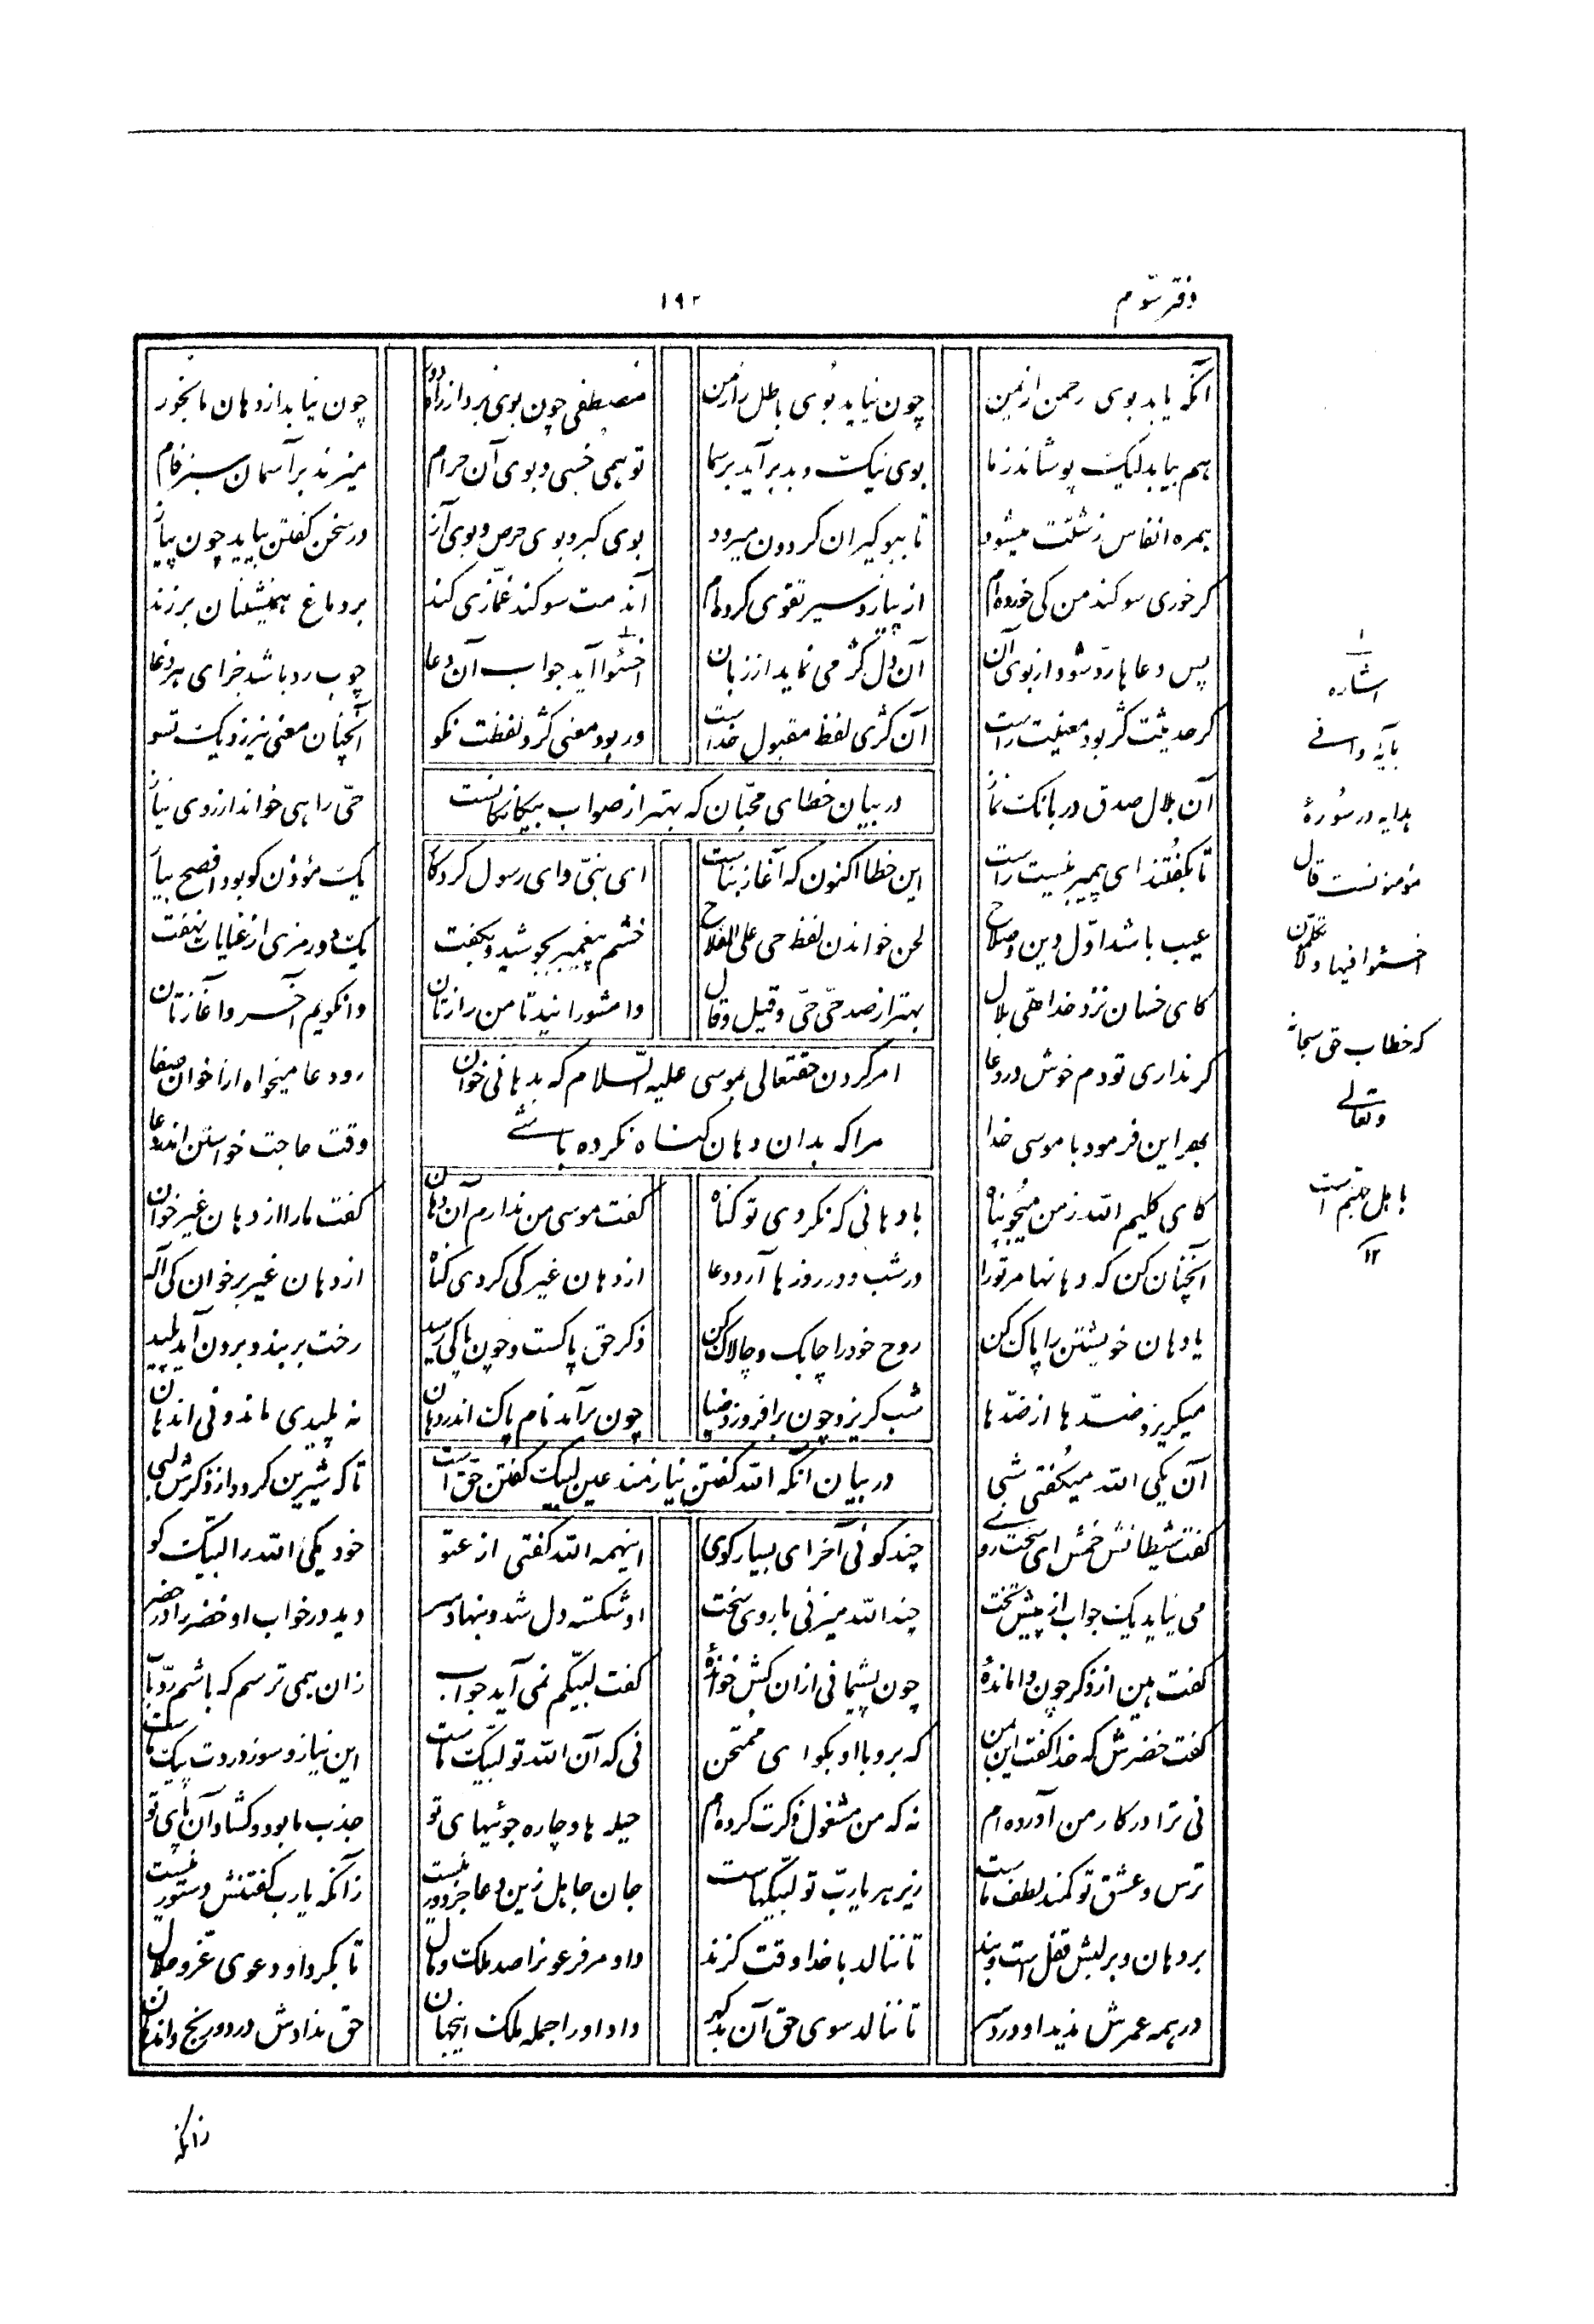 دفتر سوّم
۱۹۲
آنکه یابد بوی رحمن از یمن چون نیابد بوی باطل را ز من مصطفی چون بوی برد از راه دور چون نیابد از دهان ما بخور
هم بیابد لیک پوشاند ز ما بوی نیک و بد برآید بر سما تو همی خسبی و بوی آن حرام میزند بر آسمان سبز فام
همره انفاس زشتت میشود تا ببو گیران گردون میرود بوی کبر و بوی حرص و بوی آز در سخن گفتن بیاید چون پیاز
گر خوری سوگند من کی خورده‌ام از پیاز و سیر تقوی کرده‌ام آن دمت سوگند غمّازی کند بر دماغ همنشینان برزند
پس دعاها ردّ شود از بوی آن آن دل کژ می نماید از زبان اخسئوا آید جواب آن دعا چوب رد باشد جزای هر دغا
گر حدیثت کژ بود معنیت راست آن کژی لفظ مقبول خداست ور بود معنی کژ و لفظت نکو آنچنان معنی نیرزد یک تسو
در بیان خطای محبّان که بهتر از صواب بیگانگانست
آن بلال صدق در بانگ نماز حیّ را هی خواند از روی نیاز
تا بگفتند ای پیمبر نیست راست این خطا اکنون که آغاز بناست ای نبیّ و ای رسول کردگار یک مؤذن کو بود افصح بیار
عیب باشد اوّل دین و صلاح لحن خواندن لفظ حی علی الفلاح خشم پیغمبر بجوشید و بگفت یک دو رمزی از عنایات نهفت
کای خسان نزد خدا هیّ بلال بهتر از صد حیّ حیّ و قیل و قال وا مشورانید تا من رازتان وانگویم آخر و آغازتان
گر نداری تو دم خوش در دعا رو دعا میخواه از اخوان صفا
امر کردن حقتعالی بموسی علیه السّلام که بدهانی خوان
مرا که بدان دهان گناه نکرده باشے
بهر این فرمود با موسی خدا وقت حاجت خواستن اندر دعا
کای کلیم الله ز من میجو پناه با دهانی که نکردی تو گناه گفت موسی من ندارم آن دهان گفت ما را از دهان غیر خوان
از دهان غیر کی کردی گناه از دهان غیر بر خوان کی آله
آنچنان کن که دهانها مر تورا در شب و در روزها آرد دعا
یا دهان خویشتن را پاک کن روح خود را چابک و چالاک کن ذکر حق پاکست و چون پاکی رسید رخت بربندد برون آید پلید
میگریزد ضدّها از ضدّها شب گریزد چون برافروزد ضیا چون برآمد نام پاک اندر دهان نه پلیدی ماند و نی اندهان
در بیان آنکه الله گفتن نیازمند عین لبیک گفتن حقّ است
آن یکی الله میگفتی شبی تا که شیرین گردد از ذکرش لبی
گفت شیطانش خمش ای سخت روے چند گوئی آخر ای بسیار گوی اینهمه الله گفتی از عتو خود یکی الله را لبیک کو
می نیاید یک جواب از پیش تخت چند الله میزنی با روی سخت او شکسته دل شد و بنهاد سر دید در خواب او خضر را در خضر
گفت هین از ذکر چون وامانده چون پشیمانی از ان کش خوانده گفت لبیّکم نمی آید جواب زان همی ترسم که باشم ردّ باب
گفت خضرش که خدا گفت این بمن که برو با او بگو ای ممتحن نی که آن الله تو لبیّک ماست این نیاز و سوز و دردت پیک ماست
نی ترا در کار من آورده ام نه که من مشغول ذکرت کرده‌ام حیله ها و چاره جوئیهای تو جذب ما بود و گشاد آن پای تو
ترس و عشق تو کمند لطف ماست زیر هر یا ربّ تو لبیّکهاست جان جاهل زین دعا جز دور نیست زآنکه یا رب گفتنش دستور نیست
بر دهان و بر لبش قفل است و بند تا ننالد با خدا وقت گزند داد مر فرعون را صد ملک و مال تا بکرد او دعوی عزّ و جلال
در همه عمرش ندید او درد سر تا ننالد سوی حق آن بد گهر داد او را جمله ملک اینجهان حق ندادش درد و رنج و اندهان
۱
اشاره
بآیه واقعے
بدایه در سُورهٔ
مؤمنونست قال
اخسئوا فیها و لا تکلّمون
که خطاب حق سبحانه
و تعالے
با اهل جهنّم است
۱۲
زانکه